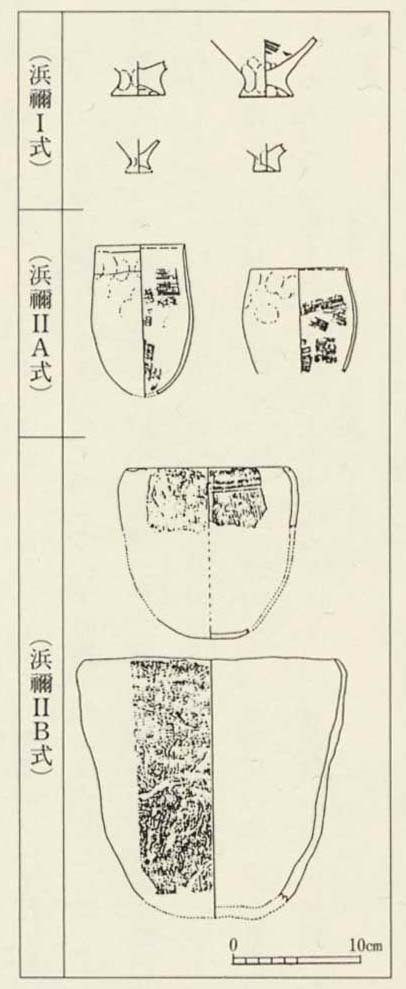 （浜禰Ⅰ式）
（浜禰ⅡA式）
（浜禰ⅡB式）
0 10cm